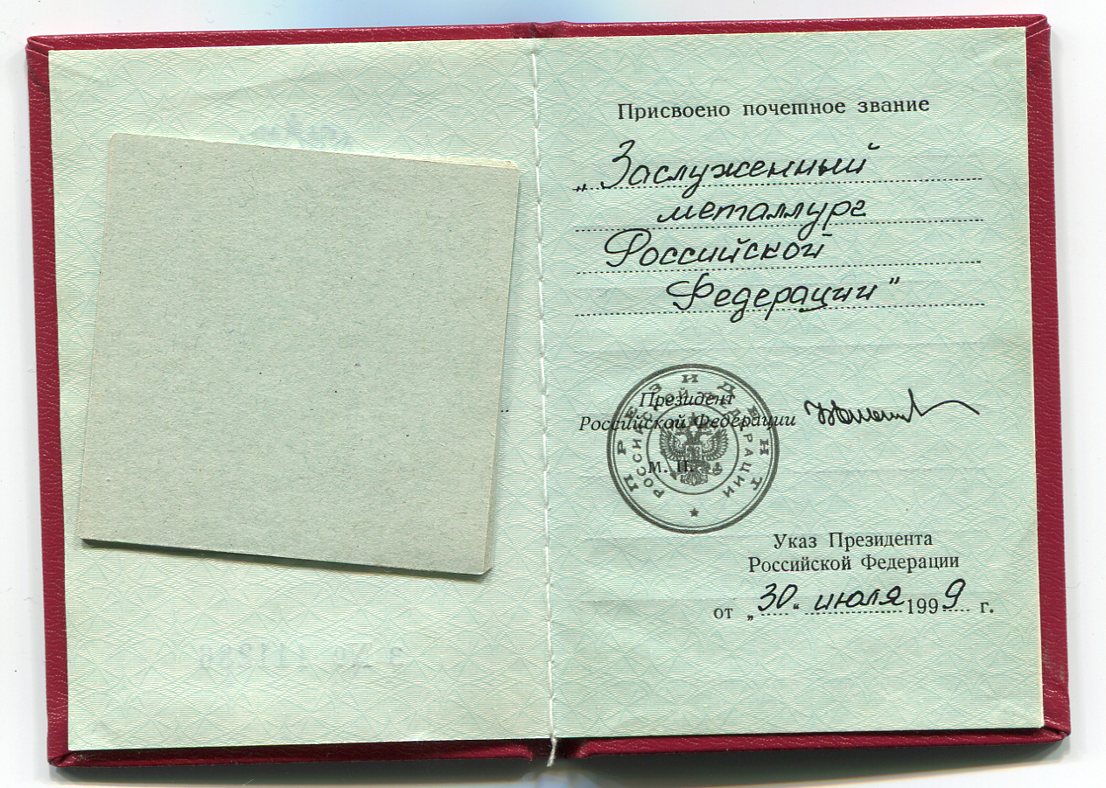 Присвоено почетное звание
„Заслуженный
металлург
Российской
Федерации"
Президент
Российской Федерации
М. П.
ПРЕЗИДЕНТ
РОССИЙСКОЙ ФЕДЕРАЦИИ
Указ Президента
Российской Федерации
от „30“ июля 1999 г.